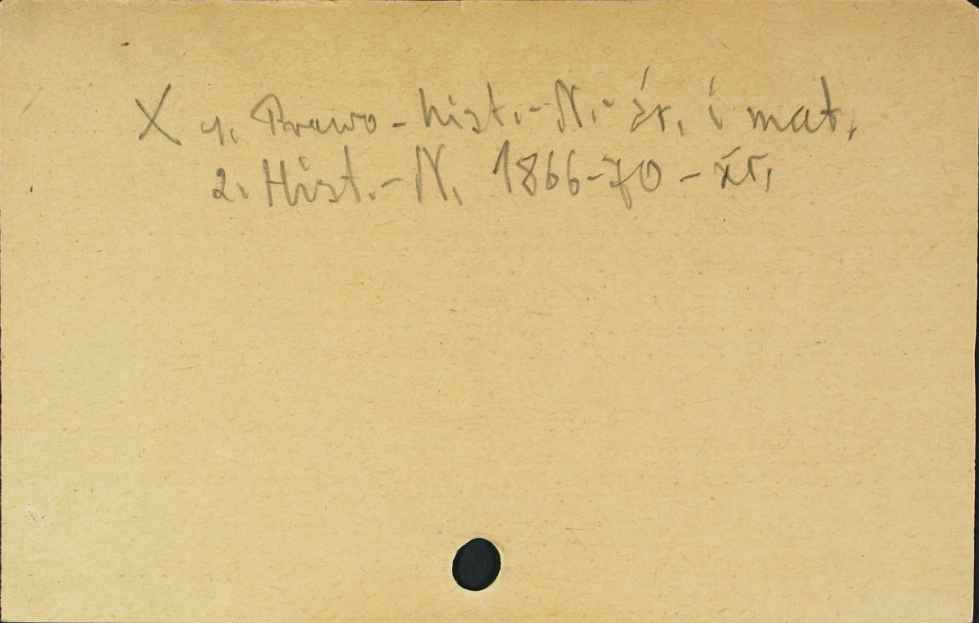 X 1. Prawo - hist. - N. - źr. i mat.
2. Hist. - N. 1866-70 - źr.